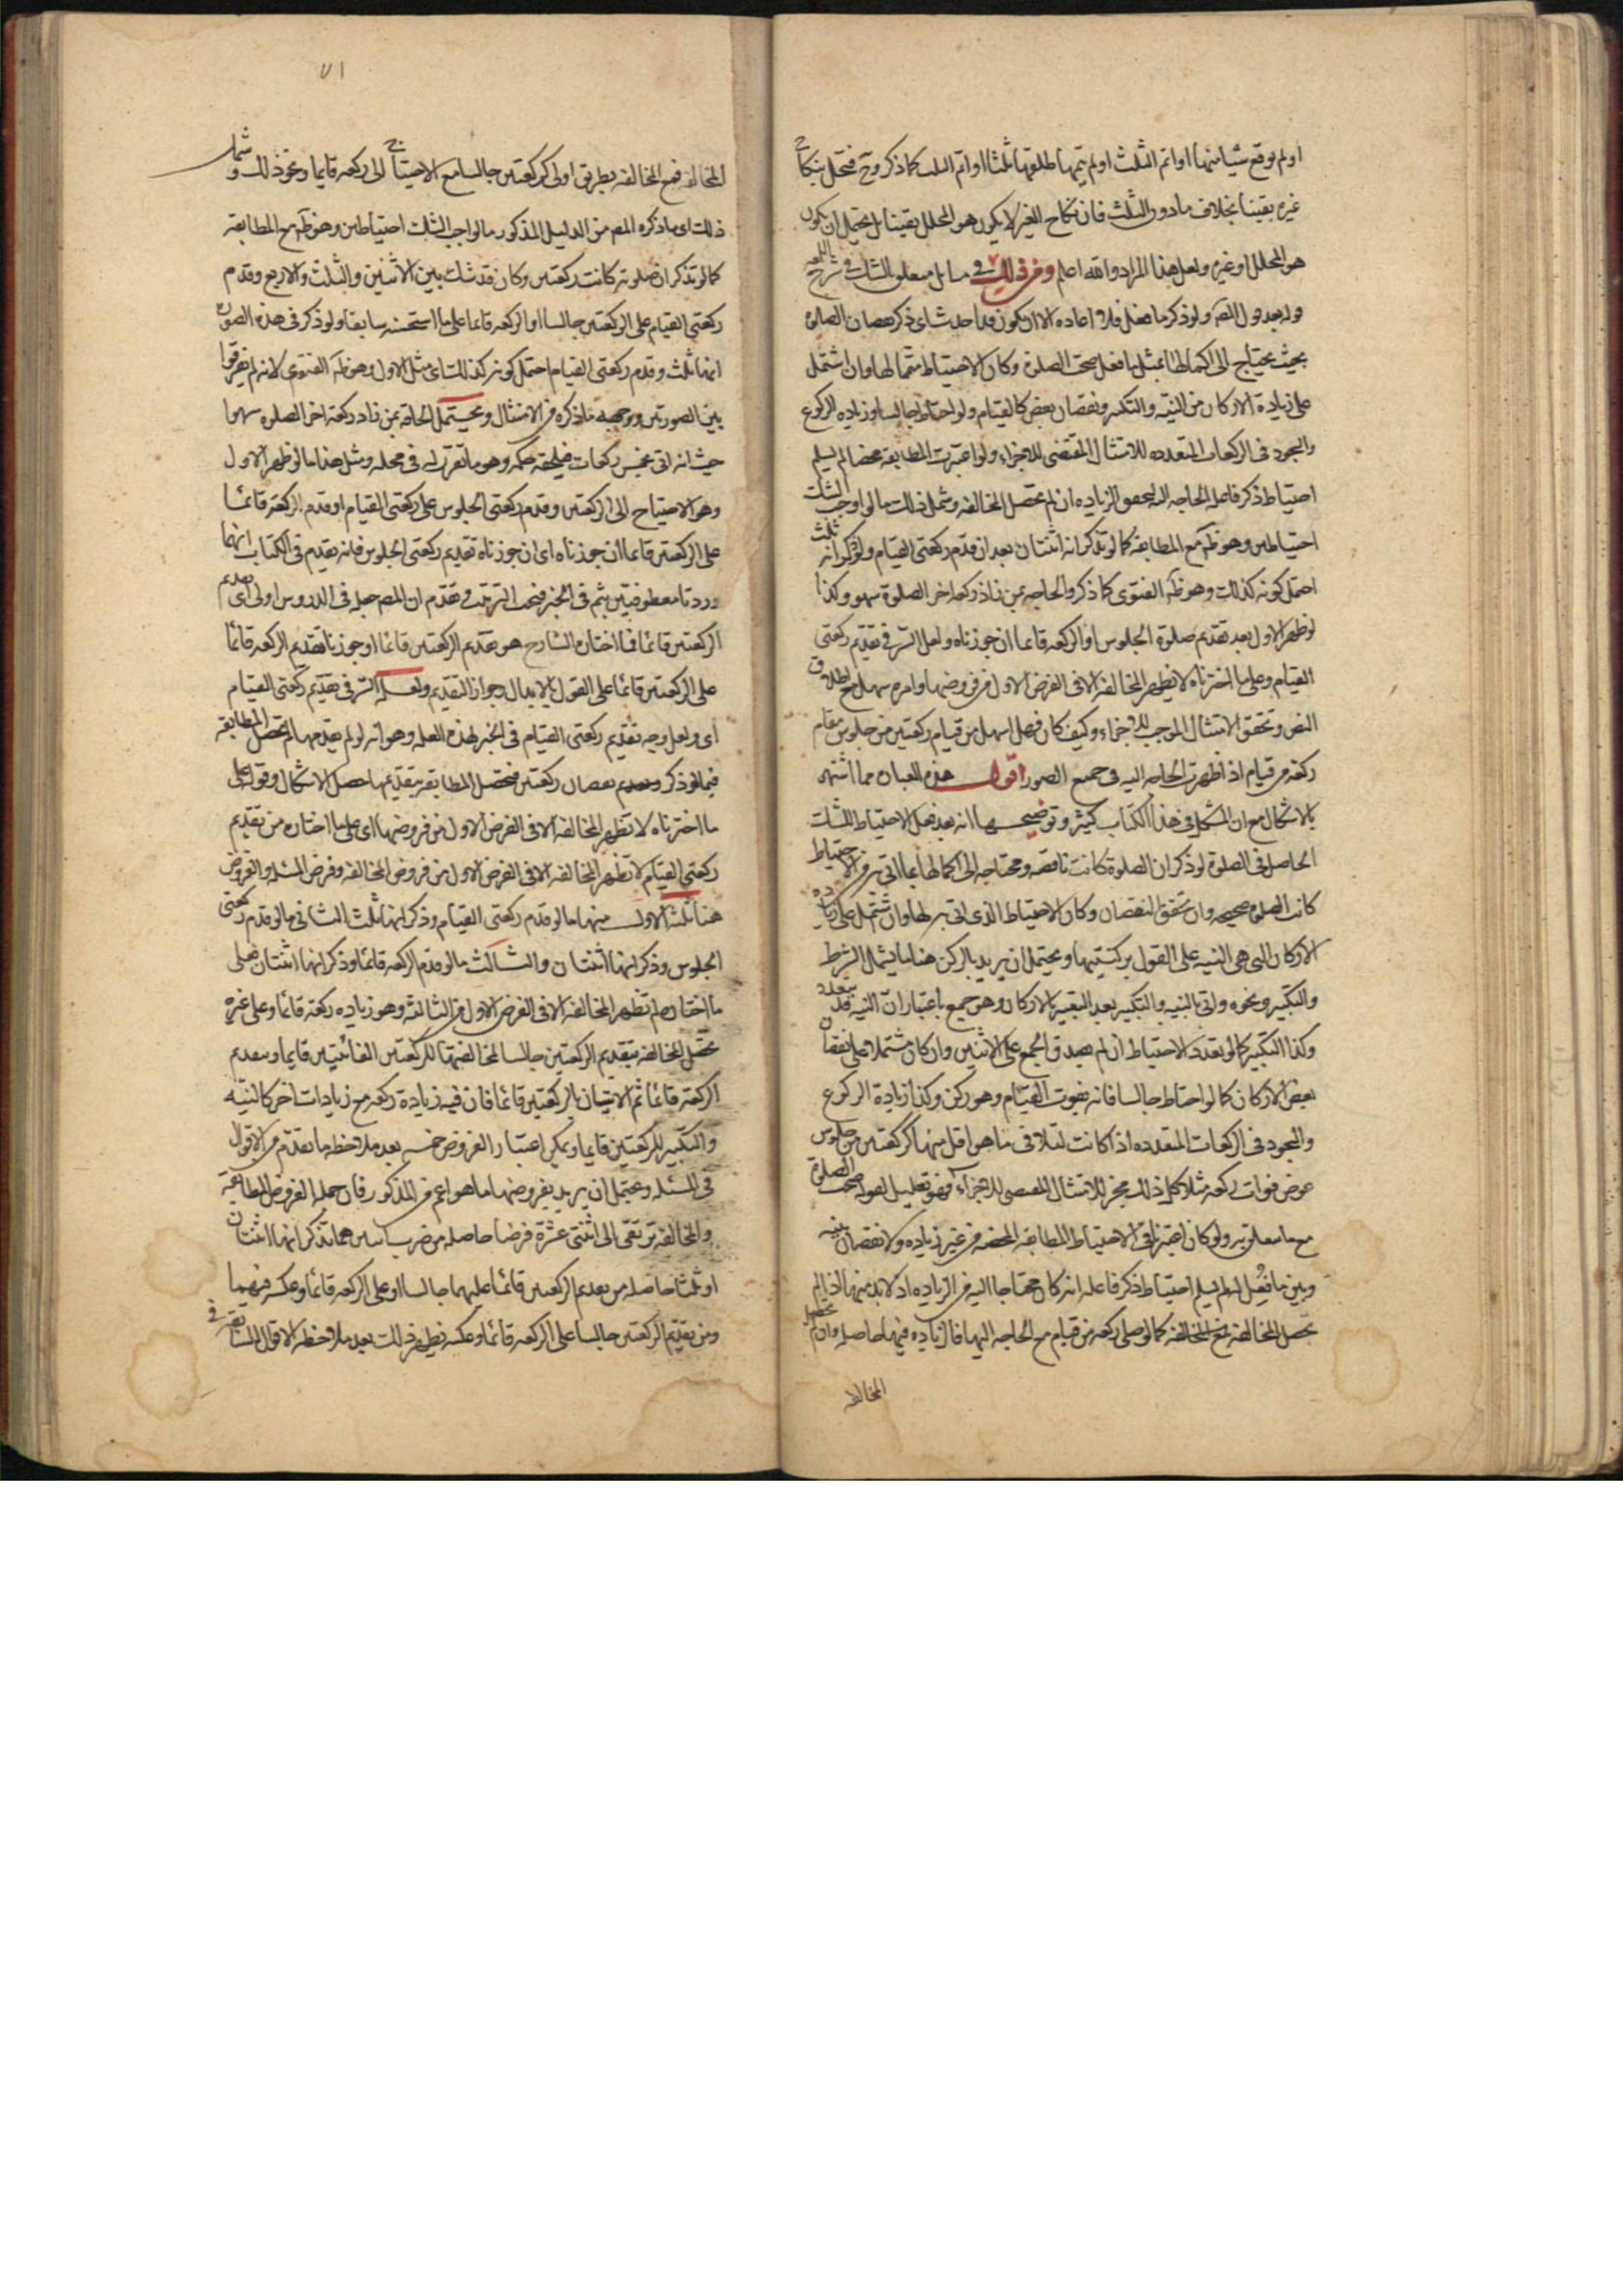 او لم يوقع شيئا منها او اتم الثلث او لم يتمها طلقها ثلثا او اتم الثلث كما ذكر وح فتحل بنكاح
غيره يقينا بخلاف ما دون الثلث فان نكاح الغير لا يكون هو المحلل يقينا بل يحتمل ان يكون
هو المحلل او غيره ولعل هذا المراد والله اعلم ومن ذلك في مسايل متعلق الشك في شرح اللمعه
وله بعد قول المص ولو ذكر ما فعل فلا اعاده الا ان يكون قد احدث اى ذكر نقصان الصلوة
بحيث يحتاج الى اكمالها بمثل ما فعل صحت الصلوة وكان الاحتياط متمما لها وان اشتمل
على زيادة الاركان من النية والتكبير ونقصان بعض كالقيام ولو احتاط جالسا وزياده الركوع
والسجود في الركعات المتعدده للامتثال المقتضى للاجزاء ولو اعتبرت المطابقة محضا لم يسلم
احتياط ذكر فاعله الحاجه اليه لتحقق الزياده ان لم تحصل المخالفه وشمل ذلك ما لو اوجب الشك
احتياطين وهو ظ مع المطابقة كما لو تذكر انه اثنتان بعد ان قدم ركعتى القيام ولو ذكر انه ثلث
احتمل كونه كذلك وهو ظ الفتوى كما ذكر والحاجه بمن زاد ركعة اخر الصلوة سهوا وكذا
لو ظهر الاول بعد تقديم صلوة الجلوس او الركعه قائما ان جوزناه ولعل السر في تقديم ركعتى
القيام وعلى ما اخترناه لا تظهر المخالفة الا في الفرض الاول من فروضها وامره سهل مع اطلاق
النص وتحقق الامتثال الموجب للاجزاء وكيف كان فهو اسهل من قيام ركعتين من جلوس مقام
ركعة من قيام اذا ظهرت الحاجه اليه في جميع الصور اقول هذه العبارة مما اشتهر
بالاشكال مع ان المشكل في هذا الكتاب كثير وتوضيحها انه بعد فعل الاحتياط للشك
الحاصل في الصلوة لو ذكر ان الصلوة كانت ناقصه ومحتاجه الى اكمالها بما اتى به من الاحتياط
كانت الصلوة صحيحه وان تحقق النقصان وكان الاحتياط الذى اتى به لها وان اشتمل على زيادة
الاركان التي هي النيه على القول بركنيتها ويحتمل ان يريد بالركن هنا ما يشمل الشرط
والتكبير ونحوه واتى بالنيه والتكبير بعد التعبير بالاركان وهو جمع باعتبار ان النيه قد تتعدد
وكذا التكبير كما لو تعدد الاحتياط ان لم يصدق الجمع على الاثنين وان كان مشتملا على نقصان
بعض الاركان كما لو احتاط جالسا فانه يفوت القيام وهو ركن وكذا زيادة الركوع
والسجود في الركعات المتعدده اذا كانت لتلافى ما هو اقل منها كركعتين من جلوس
عوض فوات ركعه مثلا كل ذلك مجز للامتثال المقتضى للاجزاء فهو تعليل لقوله صحت الصلوة
مع ما معلق به ولو كان اعتبرنا في الاحتياط المطابقه المحضه من غير زياده ولا نقصان بينه
وبين ما فعل لم يسلم احتياط ذكر فاعله انه كان محتاجا اليه من الزياده اذ لابد منها اذا لم
تحصل المخالفة فمع المخالفه كما لو صلى ركعه من قيام مع الحاجه اليها فالزياده فيها حاصله وان لم تحصل
المخالفه
٧١
المخالفه فمع المخالفه بطريق اولى كركعتين جالسا مع الاحتياج الى ركعه قايما ونحو ذلك وشمل
ذلك اى ما ذكره المص من الدليل المذكور ما لو اوجب الشك احتياطين وهو ظ مع المطابقه
كما لو تذكر ان صلوته كانت ركعتين وكان قد شك بين الاثنين والثلث والاربع وقدم
ركعتى القيام على الركعتين جالسا او الركعه قائما على ما استحسنه سابقا ولو ذكر في هذه الصوره
انها ثلث وقدم ركعتى القيام احتمل كونه كذلك اى مثل الاول وهو ظ الفتوى لانه لم يفرقوا
بين الصورتين ووجهه ما ذكره من الامتثال ويحتمل الحاقه بمن زاد ركعة اخر الصلوه سهوا
حيث انه اتى بخمس ركعات فيلحقه حكمه وهو ما تقرر له في محله ومثل هذا ما لو ظهر الاول
وهو الاحتياج الى الركعتين وقدم ركعتى الجلوس على ركعتى القيام او قدم الركعة قائما
على الركعتين قائما ان جوزناه اى ان جوزناه تقديم ركعتى الجلوس فانه تقدم في الكتاب انهما
وردتا معطوفتين بثم في الخبر فيجب الترتيب وتقدم ان المص جعله في الدروس اولى اى تقديم
الركعتين قائما فما اختاره الشارح هو تقديم الركعتين قائما او جوزنا تقديم الركعه قائما
على الركعتين قائما على القول بالابدال وجواز التقديم ولعل السر في تقديم ركعتى القيام
اى ولعل وجه تقديم ركعتى القيام في الخبر لهذه العله وهو انه لو لم يقدمهما لم تحصل المطابقه
فيما لو ذكر نقصان ركعتين فتحصل المطابقه بتقديمهما حصل الاشكال وقوله على
ما اخترناه لا تظهر المخالفه الا في الفرض الاول من فروضها اى على ما اختاره من تقديم
ركعتى القيام لا تظهر المخالفه الا في الفرض الاول من فروض المخالفه وفرض المسئله والفروض
هنا ثلثه الاول منها ما لو قدم ركعتى القيام وذكر انها ثلث الثانى ما لو قدم ركعتى
الجلوس وذكر انها اثنتان والثالث ما لو قدم الركعه قائما وذكر انها اثنتان فعلى
ما اختاره لم تظهر المخالفه الا في الفرض الاول من الثلاثه وهو زياده ركعة قائما وعلى غيره
تحصل المخالفه بتقديم الركعتين جالسا لمخالفتهما للركعتين الفائتتين قايما وبتقديم
الركعة قائما ثم الاتيان بالركعتين قائما فان فيه زيادة ركعه مع زيادات اخر كالنيه
والتكبير للركعتين قايما ويمكن اعتبار الفروض خمسه بعد ملاحظه ما تقدم من الاقوال
في المسئله ويحتمل ان يريد بفروضها ما هو اعم من المذكور فان جمله الفروض المطابقه
والمخالفة ترتقى الى اثنتى عشرة فرضا حاصله من ضرب ستة هما تذكر انها اثنتان
او ثلث حاصله من تقديم الركعتين قائما عليهما جالسا او على الركعه قائما وعكسه فيهما
ومن تقديم الركعتين جالسا على الركعه قائما وعكسه يظهر ذلك بعد ملاحظه الاقوال السابقة في